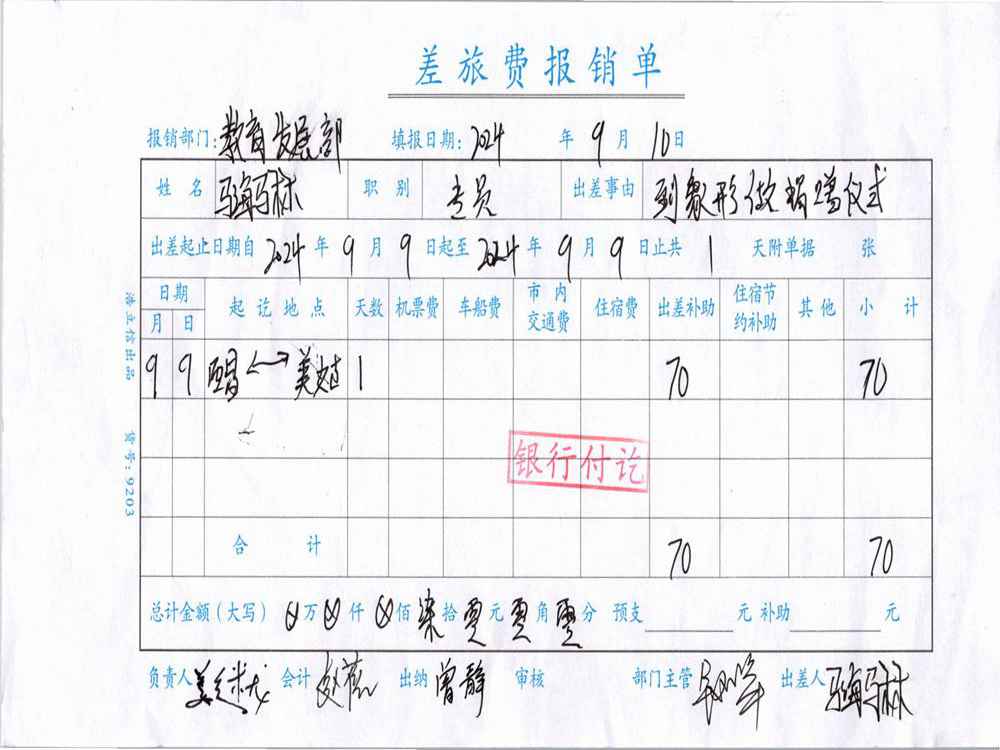 差旅费报销单
报销部门：教育发展部 填报日期：2024 年 9 月 10 日
姓名 职别 专员 出差事由 到象形做捐赠仪式
出差起止日期自 2024 年 9 月 9 日起至 2024 年 9 月 9 日止共 1 天附单据 张
日期 起讫地点 天数 机票费 车船费 市内交通费 住宿费 出差补助 住宿节约补助 其他 小计
月 日
9 9 1 70 70
银行付讫
合计 70 70
总计金额（大写） 万 仟 佰 柒 拾 零 元 零 角 零 分 预支 元 补助 元
负责人 会计 出纳 曾静 审核 部门主管 出差人
货号：9203